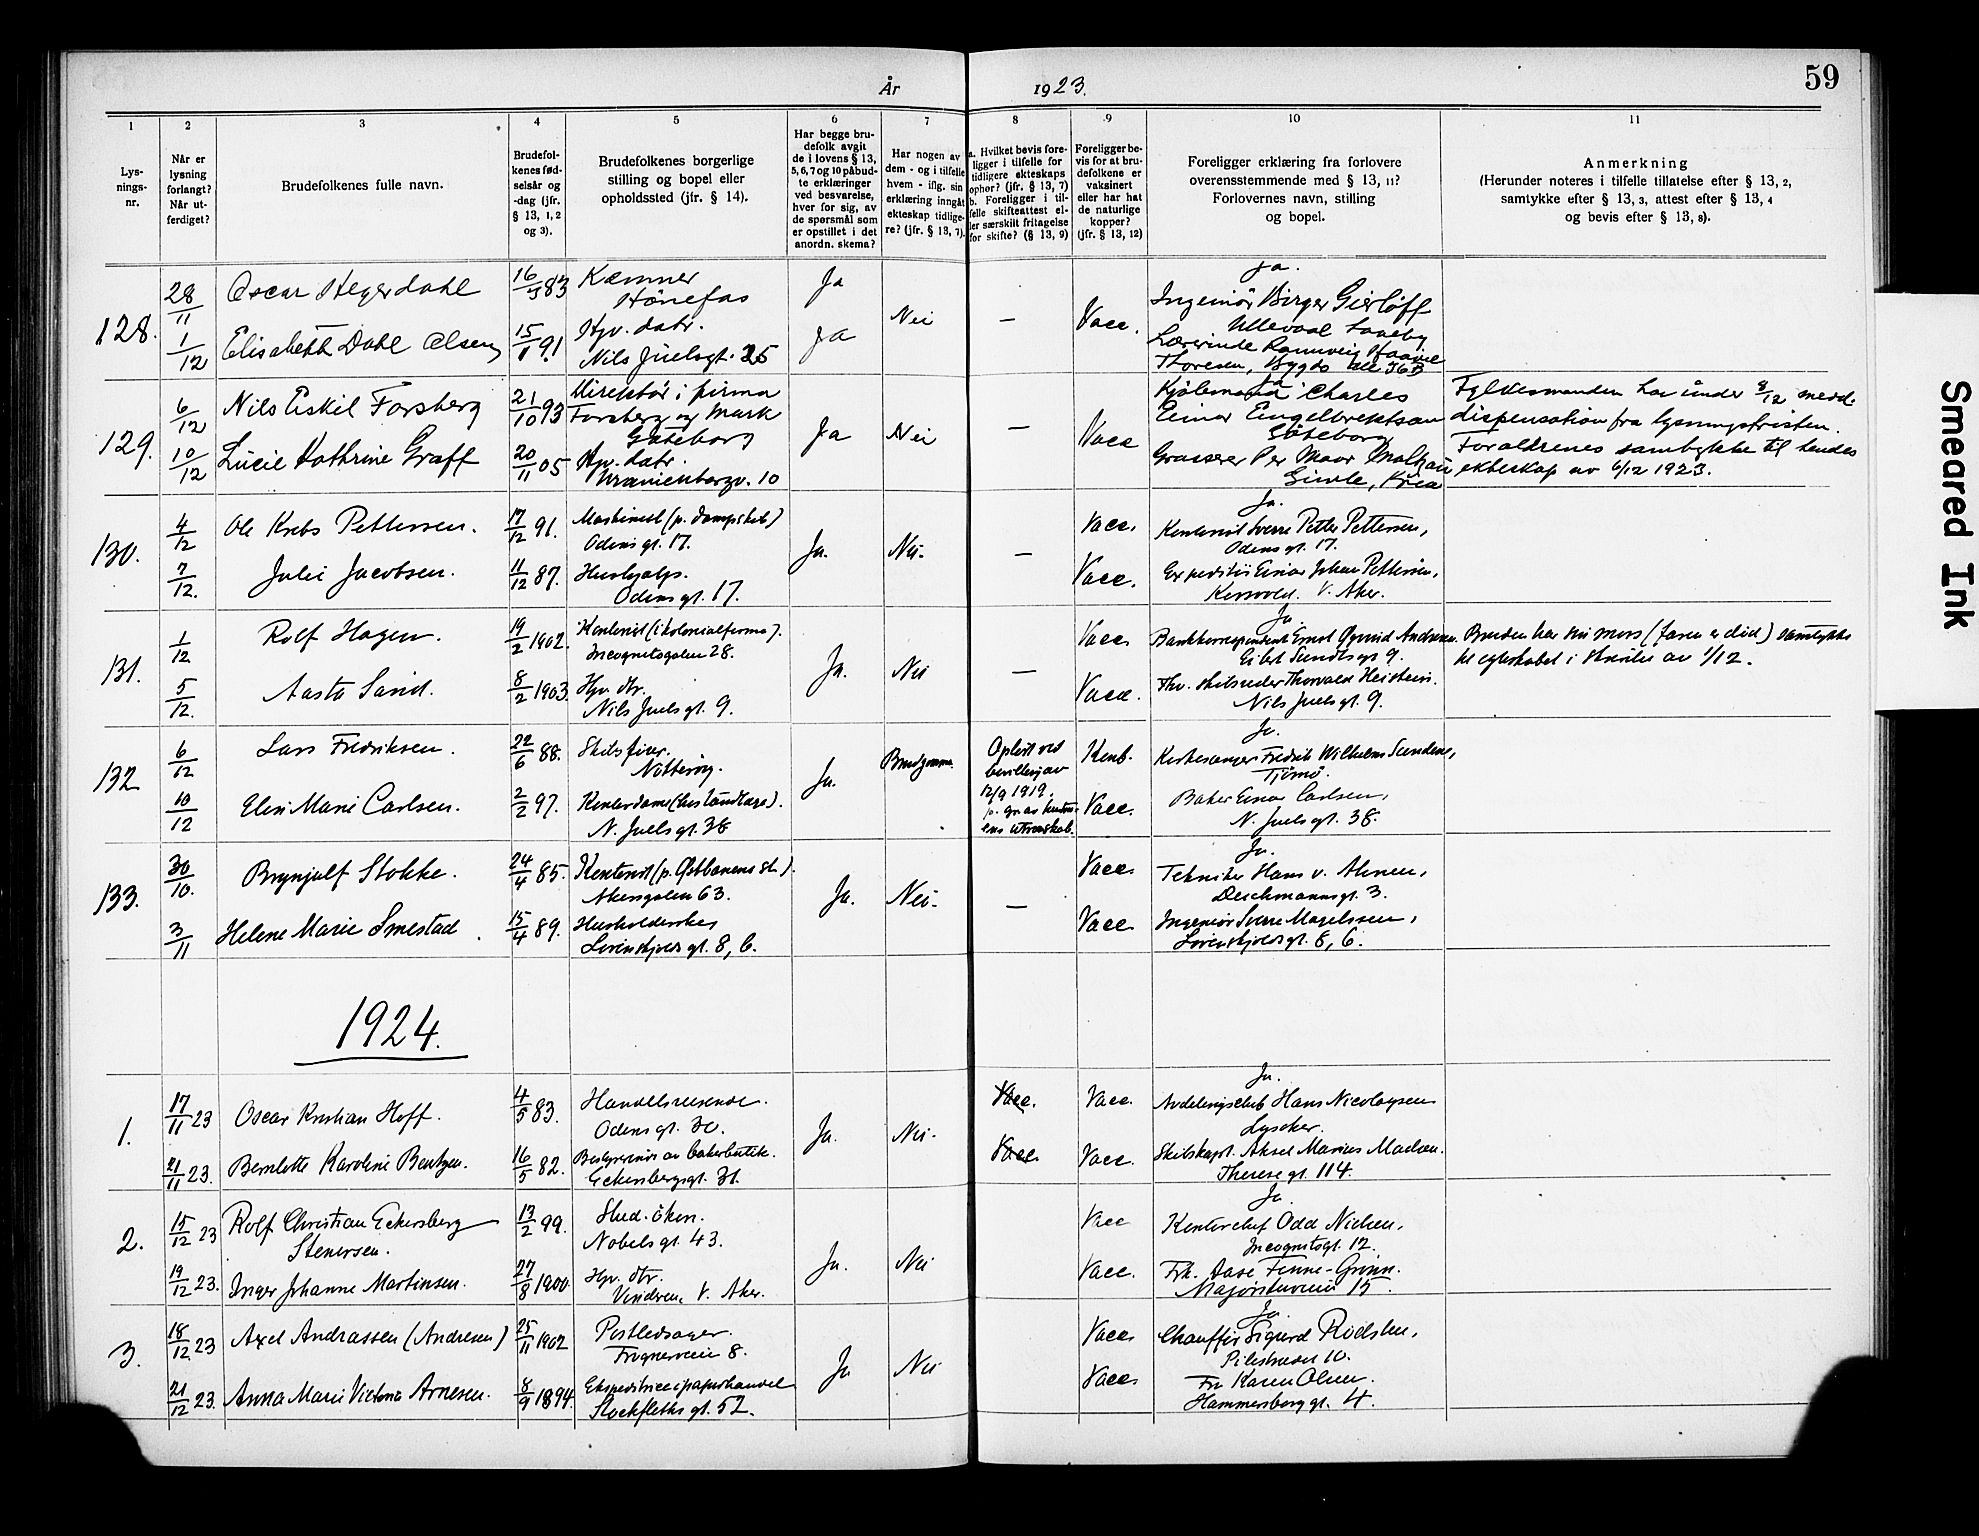 År 1923.
59
1 2 3 4 5 6 7 8 9 10 11
Lys-
nings-
nr.
Når er
lysning
forlangt?
Når ut-
ferdiget?
Brudefolkenes fulle navn.
Brudefol-
kenes fød-
selsår og
-dag (jfr.
§ 13, 1, 2
og 3).
Brudefolkenes borgerlige
stilling og bopel eller
opholdssted (jfr. § 14).
Har begge bru-
defolk avgit
de i lovens § 13,
5, 6, 7 og 10 påbud-
te erklæringer
ved besvarelse,
hver for sig, av
de spørsmål som
er opstillet i det
anordn. skema?
Har nogen av
dem - og i tilfelle
hvem - iflg. sin
erklæring inngåt
ekteskap tidlige-
re? (jfr. § 13, 7).
a. Hvilket bevis fore-
ligger i tilfelle for
tidligere ekteskaps
ophør? (jfr. § 13, 7)
b. Foreligger i til-
felle skifteattest el-
ler særskilt fritagelse
for skifte? (§ 13, 9)
Foreligger be-
vis for at bru-
defolkene er
vaksinert
eller har hat
de naturlige
kopper?
(jfr. § 13, 12)
Foreligger erklæring fra forlovere
overensstemmende med § 13, 11?
Forlovernes navn, stilling
og bopel.
Anmerkning
(Herunder noteres i tilfelle tillatelse efter § 13, 2,
samtykke efter § 13, 3, attest efter § 13, 4
og bevis efter § 13, 8).
128.
28/11
1/12
Oscar Hegerdahl
Elisabeth Dahl Olsen
15/1 91
Kæmner
Hönefos
Hjv. datr.
Nils Juelsgt. 25
Ja
Ja
Nei
—
Vacc.
Ja.
Ingeniör Birger Gierløff
Ullevaal
Lærerinde Rannveig
Thoresen, Bygdö
129.
6/12
10/12
Nils Eskil Forsberg
Lucie Kathrine Graff
21/10 93
20/11 05
Direktör i firma
Forsberg og Mark
Göteborg
Hjv. datr.
Uranienborgv. 10
Ja
Nei
—
Vacc
Ja
Charles
Einar Engelbrektson
Göteborg
Grosserer Per
Fylkesmanden har under 8/12 medd.
dispensation fra lysningsfristen.
Foraldrenes samtykke til hendes
ekteskap av 6/12 1923.
130.
4/12
7/12.
Ole Krebs Pettersen.
Julie Jacobsen.
17/12 91.
11/12 87.
Maskinist (p. dampskib)
Odins gt. 17.
Hushjælp.
Odins gt. 17.
Ja.
Nei.
—
Vacc.
Vacc.
Ja.
Kontorist Sverre Petter Pettersen,
Odens gt. 17.
Einar Johan Pettersen,
V. Aker.
131.
1/12
5/12.
Rolf Hagen.
Aasta Sand.
19/2 1902.
8/2 1903.
Kontorist (i kolonialfirma).
Incognitogaten 28.
Hjv. dtr.
Nils Juels gt. 9.
Ja.
Nei
—
Vacc
Vacc.
Ja.
Bankkorrespondent Ernst Øyvind Andresen.
Eilert Sundts gt 9.
Thorvald
Nils Juels gt. 9.
Bruden har sin mors (faren er død) samtykke
til egteskabet i skrivelse av 1/12.
132
6/12
10/12
Lars Fredriksen.
Elen Marie Carlsen.
22/6 88.
2/2 97.
Skibsfører.
Nötteröy.
Kontordame
N. Juels gt. 38
Ja.
Brudgommen
Oplöst ved
bevilling av
12/9 1919.
p. gr. av
ens utroskab.
Vacc.
Ja.
Kirkesanger Fredrik Wilhelm Sundene,
Tjömö.
Baker Einar Carlsen,
N. Juels gt. 38.
133.
30/10.
3/11
Brynjulf Stokke.
Helene Marie Smestad.
24/4 85.
15/4 89.
Kontorist (p. Østbanens st.).
Akersgaten 63.
Husholderske
Lovenskjolds gt. 8, 6.
Ja.
Nei.
—
Vacc.
Vacc
Ja.
Tekniker Hans v. Ahnen,
Deichmannsgt. 3.
Ingeniör Sverre Magelssen,
Lövenskjolds gt. 8, 6.
1924.
1.
17/11 23
21/11 23.
Oscar Kristian Hoff.
Bernlotte Karoline Bentzen.
4/5 83.
16/5 82.
Handelsreisende.
Odins gt. 30.
Bestyrerinde av bakerbutik.
Eckersbergs gt. 31.
Ja.
Nei.
Vacc.
Vacc.
Vacc.
Vacc.
Ja.
Avdelingschef Hans Nicolaysen
Lysaker.
Skibskapt. Aksel Marius Madsen.
Therese gt. 114.
2.
15/12 23
19/12 23.
Rolf Christian Eckersberg
Stenersen.
Inger Johanne Martinsen.
13/2 99.
27/8 1900
Stud. öken.
Nobels gt. 43.
Hjv. dtr.
Vinderen, V. Aker.
Ja.
Nei
Vacc
Vacc.
Ja
Kontorchef Odd Nielsen,
Incognitogt. 12.
Frk. Aase Finne-Grønn.
Majorstuveien 15.
3.
18/12 23
21/12 23.
Axel Andrassen (Andresen)
Anna Marie Victoria Arnesen.
25/11 1902
8/9 1894.
Postledsager.
Frognerveien 8.
Ekspeditrice i papirhandel
Stockfleths gt. 52.
Ja
Nei
Vacc.
Vacc.
Ja
Chauffør Sigurd Rödsten,
Pilestredet 10.
Fru Karen Olsen.
Hammersborg gt. 4.
Smeared Ink